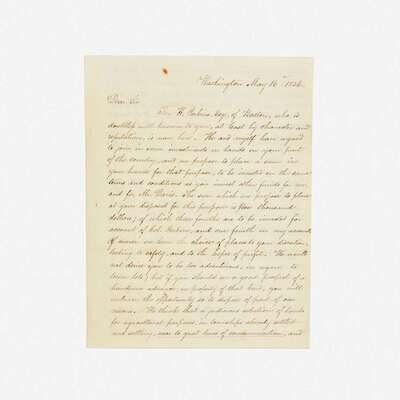 Washington May 16th 1836.
Dear Sir
H. Perkins Esq. of Boston, who is
doubtless well known to you, at least by character and
reputation, is now here. He and myself have agreed
to join in some investments in lands in your part
of the country, and we propose to place a sum in
your hands for that purpose, to be invested on the same
terms and conditions as you invest other funds for me,
and for Mr. Davis. The sum which we propose to place
at your disposal for this purpose is four thousand
dollars; of which three fourths are to be invested for
account of Col. Perkins, and one fourth on my account
of course we leave the choice of places to your discretion,
looking to safety, and to the hopes of profit. He would
not desire you to be too adventurous, in regard to
town lots; but if you should see a good prospect of a
handsome advance in property of that kind, you will
embrace the opportunity so to dispose of part of our
means. We think that a judicious selection of lands
for agricultural purposes, in townships already settled
and settling, near to great lines of communication, and